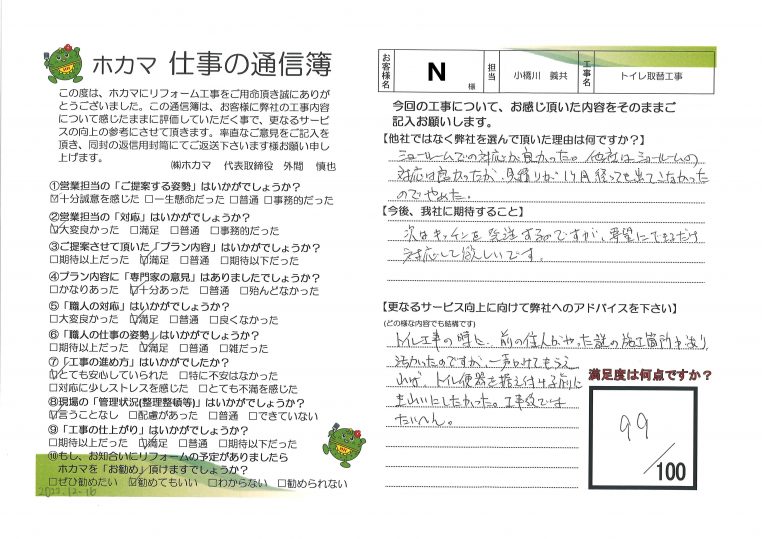 ホカマ 仕事の通信簿
この度は、ホカマにリフォーム工事をご用命頂き誠にありが
とうございました。この通信簿は、お客様に弊社の工事内容
について感じたままに評価していただく事で、更なるサービ
スの向上の参考にさせて頂きます。率直なご意見をご記入を
頂き、同封の返信用封筒にてご返送下さいます様お願い申し
上げます。
㈱ホカマ 代表取締役 外間 慎也
①営業担当の「ご提案する姿勢」はいかがでしょうか?
☑十分誠意を感じた □一生懸命だった □普通 □事務的だった
②営業担当の「対応」はいかがでしょうか?
☑大変良かった □満足 □普通 □事務的だった
③ご提案させて頂いた「プラン内容」はいかがでしょうか?
□期待以上だった ☑満足 □普通 □期待以下だった
④プラン内容に「専門家の意見」はありましたでしょうか?
□かなりあった ☑十分あった □普通 □殆んどなかった
⑤「職人の対応」はいかがでしょうか?
□大変良かった ☑満足 □普通 □良くなかった
⑥「職人の仕事の姿勢」はいかがでしょうか?
□期待以上だった ☑満足 □普通 □雑だった
⑦「工事の進め方」はいかがでしたか?
☑とても安心していられた □特に不安はなかった
□対応に少しストレスを感じた □とても不満を感じた
⑧現場の「管理状況(整理整頓等)」はいかがでしょうか?
☑言うことなし □配慮があった □普通 □できていない
⑨「工事の仕上がり」はいかがでしょうか?
□期待以上だった ☑満足 □普通 □期待以下だった
⑩もし、お知合いにリフォームの予定がありましたら
ホカマを「お勧め」頂けますでしょうか?
□ぜひ勧めたい ☑勧めてもいい □わからない □勧められない
2022.12.16
お客様名 N 様 担当 小橋川 義共 工事名 トイレ取替工事
今回の工事について、お感じ頂いた内容をそのままご
記入お願いします。
【他社ではなく弊社を選んで頂いた理由は何ですか?】
ショールームでの対応が良かった。他社はショールームの
対応は良かったが、見積りが1ヶ月経っても出てこなかった
のでやめた。
【今後、我社に期待すること】
次はキッチンを発注するのですが、要望にできるだけ
対応して欲しいです。
【更なるサービス向上に向けて弊社へのアドバイスを下さい】
(どの様な内容でも結構です)
トイレ工事の時に、前の住人がやった謎の施工箇所があり
汚かったのですが、一声かけてもらえ
れば、トイレ便器を据え付ける前に
きれいにしたかった。工事後では
たいへん。
満足度は何点ですか?
99
/100